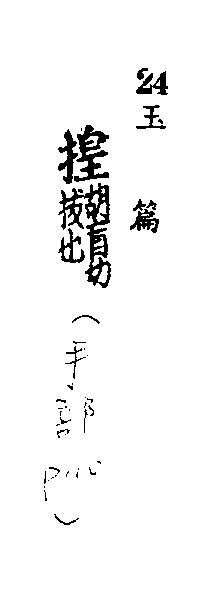 24
玉篇
揘
胡盲切
拔也
(手部
)